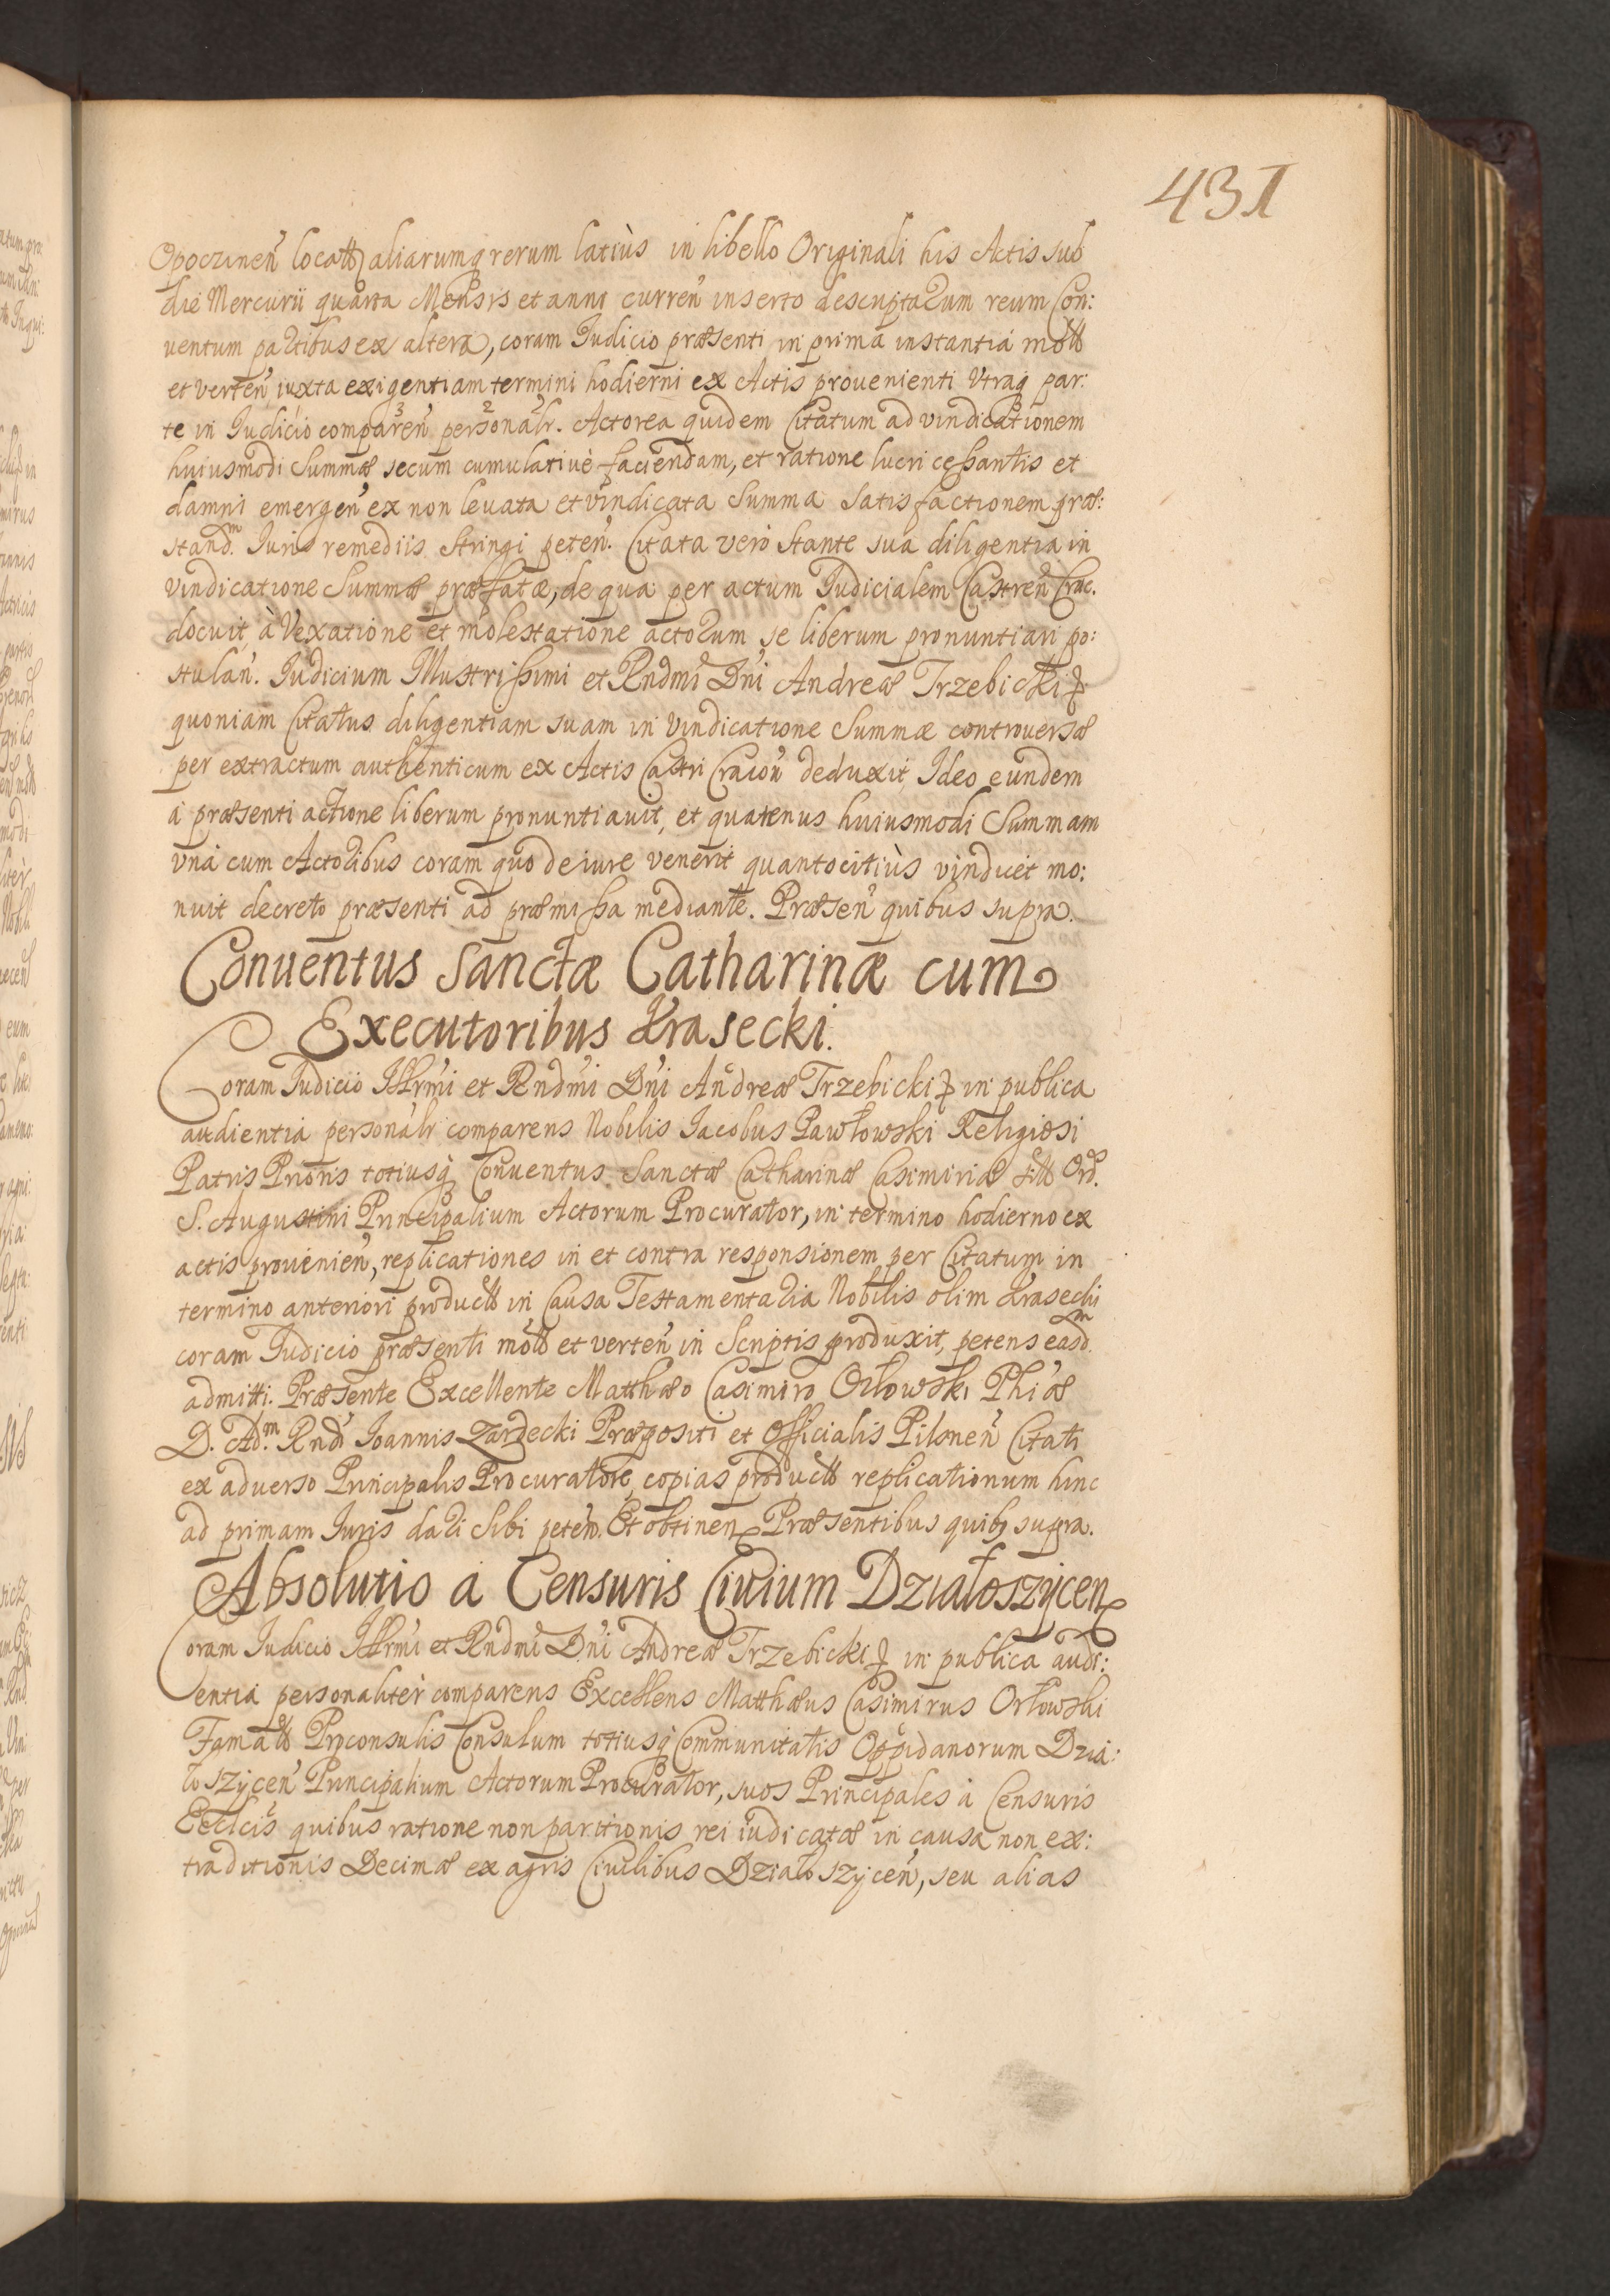 431
Opoczinen̄ locatt aliarumq rerum latiùs in libello Originali his Actis sub
die Mercurii quarta Mensis et anni curren̄ inserto descriptarum reum Con:
ventum partibus ex altera, coram Iudicio præsenti in prima instantia mott
et verten̄ iuxta exigentiam termini hodierni ex Actis prouenienti Vtraq par:
te in Iudicio comparen̄ personalr. Actorea quidem Citatum ad vindicationem
huiusmodi Summæ secum cumulatiuè faciendam, et ratione lucri cessantis et
damni emergen̄ ex non leuata et vindicata Summa satisfactionem præ:
stand.m Iuris remediis stringi peten̄. Citata verò stante sua diligentia in
vindicatione Summæ præfatæ, de qua per actum Iudicialem Castren̄ Crac.
docuit, à Vexatione et molestatione actorum se liberum pronuntiari po:
stulan̄. Iudicium Illustrissimi et Rndmi Dni Andreæ Trzebicki
quoniam Citatus diligentiam suam in vindicatione Summæ controuersæ
per extractum authenticum ex Actis Castri Cracoū deduxit, Ideo eundem
à præsenti actione liberum pronuntiauit, et quatenus huiusmodi Summam
vnà cum Actoribus coram quo de iure venerit quantocitiùs vindicet mo:
nuit decreto præsenti ad præmissa mediante. Præsen̄ quibus supra.
Conuentus Sanctæ Catharinæ cum
Executoribus Krasecki.
Coram Iudicio Illrmi et Rndmi Dni Andreæ Trzebicki in publica
audientia personalr comparens Nobilis Iacobus Pawłowski Religiosi
Patris Prioris totiusq Conuentus Sanctæ Catharinæ Casimiriæ sitt Ord.
S. Augustini Principalium Actorum Procurator, in termino hodierno ex
actis prouenien̄, replicationes in et contra responsionem per Citatum in
termino anteriori product in Causa Testamentaria Nobilis olim Krasecki
coram Iudicio præsenti mott et verten̄ in Scriptis produxit, petens easd.m
admitti. Præsente Excellente Matthæo Casimiro Orłowski Phiæ
D. Ad.m Rndi Ioannis Zardecki Præpositi et Officialis Pilsnen̄ Citati
ex aduerso Principalis Procuratore, copias product replicationum hinc
ad primam Iuris dari sibi peten̄. Et obtinen̄ Præsentibus quibq supra.
Absolutio a Censuris Ciuium Działoszÿcen̄
Coram Iudicio Illrmi et Rndmi Dni Andreæ Trzebicki in publica audi:
entia personalitèr comparens Excellens Matthæus Casimirus Orłowski
Famatt Proconsulis Consulum totiusq Communitatis Oppidanorum Dzia:
łoszÿcen̄ Principalium Actorum Procurator, suos Principales à Censuris
Ecclcis quibus ratione non paritionis rei iudicatæ in causa non ex:
traditionis Decimæ ex agris Ciuilibus Działoszÿcen̄, seu alias